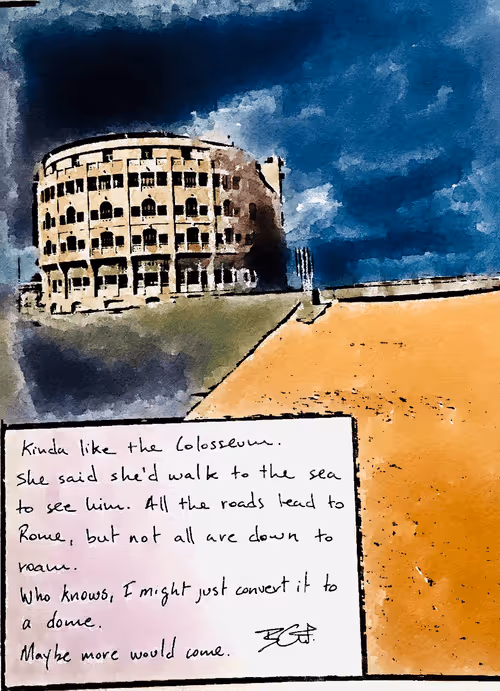 Kinda like the Colosseum.
She said she'd walk to the sea
to see him. All the roads lead to
Rome, but not all are down to
roam.
Who knows, I might just convert it to
a dome.
Maybe more would come.